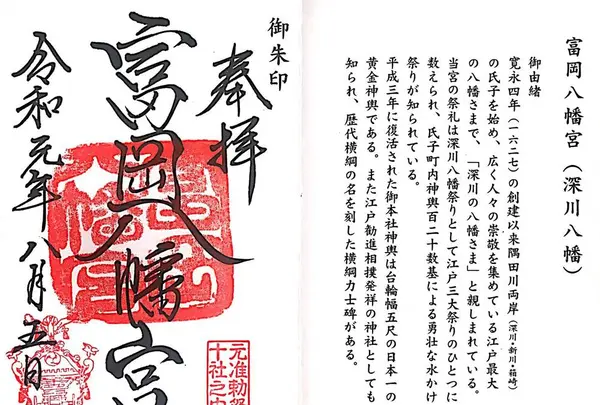 富岡八幡宮（深川八幡）
御由緒
寛永四年（一六二七）の創建以来隅田川両岸（深川・新川・箱崎）
の氏子を始め、広く人々の崇敬を集めている江戸最大
の八幡さまで、「深川の八幡さま」と親しまれている。
当宮の祭礼は深川八幡祭りとして江戸三大祭りのひとつに
数えられ、氏子町内神輿百二十数基による勇壮な水かけ
祭りが知られている。
平成三年に復活された御本社神輿は台輪幅五尺の日本一の
黄金神輿である。また江戸勧進相撲発祥の神社としても
知られ、歴代横綱の名を刻した横綱力士碑がある。
御朱印
奉拝
富岡八幡宮
元准勅祭
十社之内
令和元年八月五日